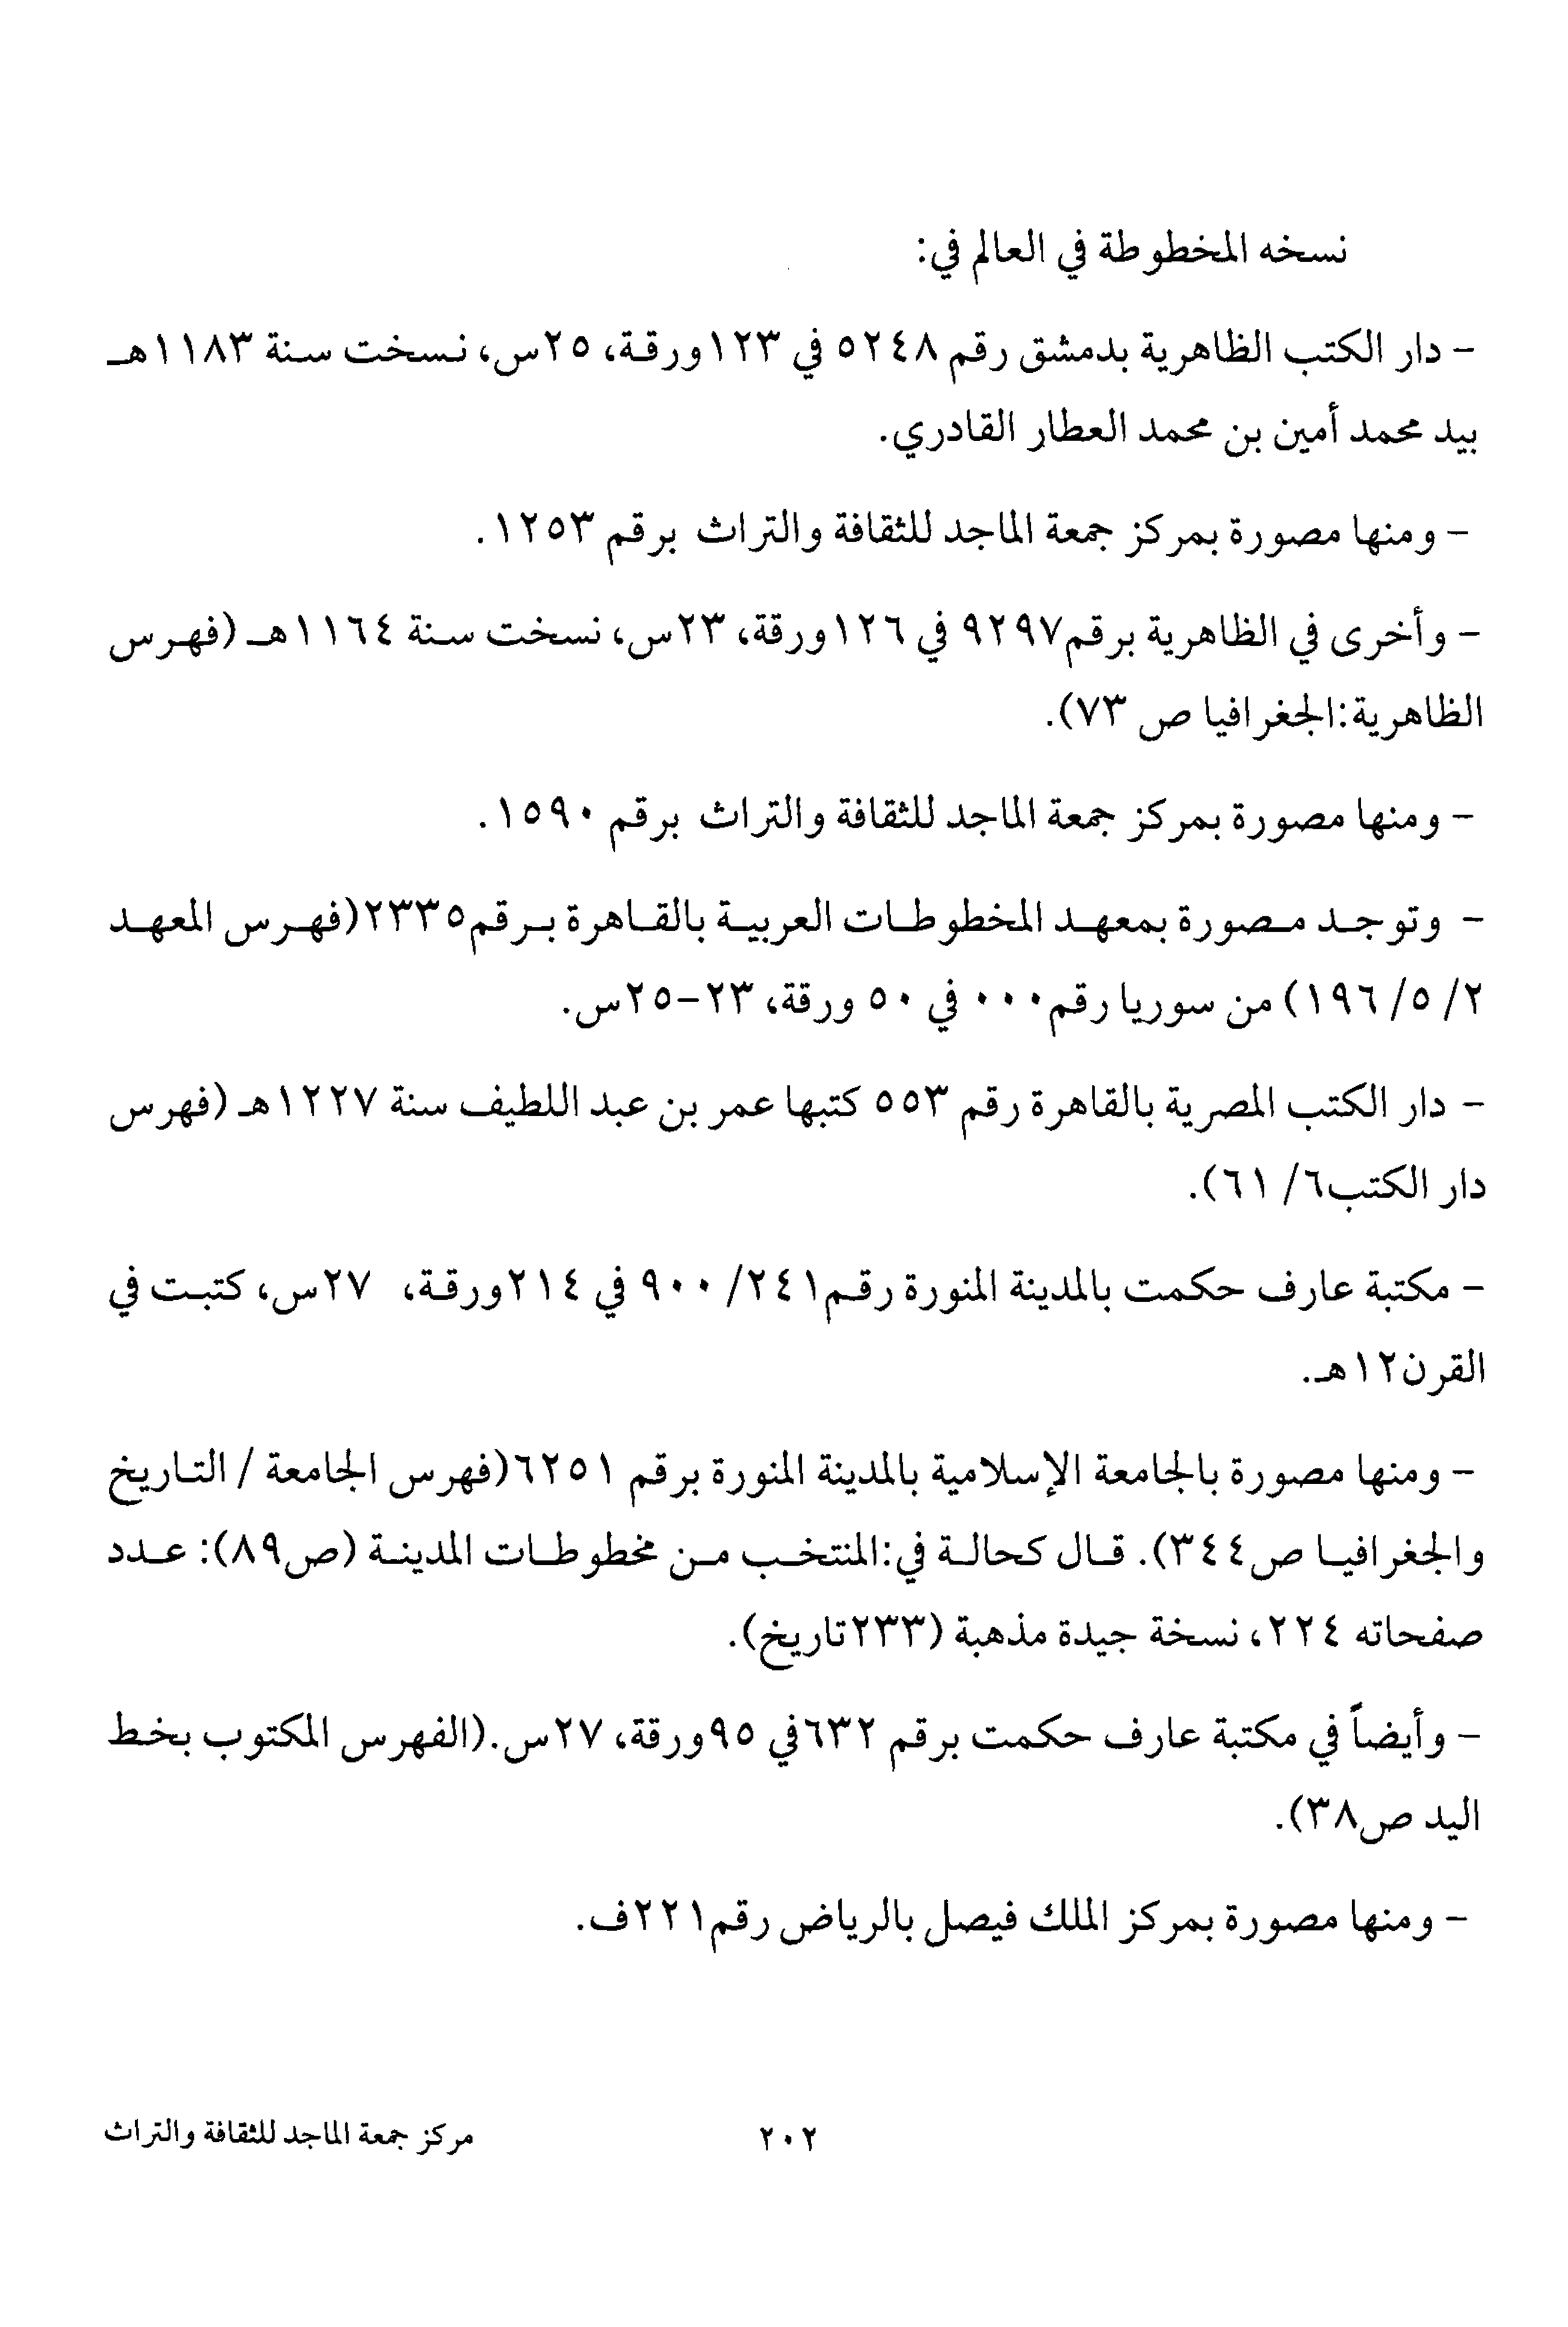 نسخه المخطوطة في العالم في:
- دار الكتب الظاهرية بدمشق رقم ٥٢٤٨ في ١٢٣ورقة، ٢٥س، نسخت سنة ١١٨٣هـ
بيد محمد أمين بن محمد العطار القادري.
- ومنها مصورة بمركز جمعة الماجد للثقافة والتراث برقم ١٢٥٣.
- وأخرى في الظاهرية برقم٩٢٩٧ في ١٢٦ورقة، ٢٣س، نسخت سنة ١١٦٤هـ (فهرس
الظاهرية:الجغرافيا ص ٧٣).
- ومنها مصورة بمركز جمعة الماجد للثقافة والتراث برقم ١٥٩٠.
- وتوجد مصورة بمعهد المخطوطات العربية بالقاهرة برقم٢٣٣٥(فهرس المعهد
٢/ ٥/ ١٩٦) من سوريا رقم٠٠٠ في ٥٠ ورقة، ٢٣-٢٥س.
- دار الكتب المصرية بالقاهرة رقم ٥٥٣ كتبها عمر بن عبد اللطيف سنة ١٢٢٧هـ (فهرس
دار الكتب٦/ ٦١).
- مكتبة عارف حكمت بالمدينة المنورة رقم٢٤١/ ٩٠٠ في ٢١٤ورقة، ٢٧س، كتبت في
القرن١٢هـ.
- ومنها مصورة بالجامعة الإسلامية بالمدينة المنورة برقم ٦٢٥١(فهرس الجامعة / التاريخ
والجغرافيا ص٣٤٤). قال كحالة في:المنتخب من مخطوطات المدينة (ص٨٩): عدد
صفحاته ٢٢٤، نسخة جيدة مذهبة (٢٣٣تاريخ).
- وأيضاً في مكتبة عارف حكمت برقم ٦٣٢في ٩٥ورقة، ٢٧س.(الفهرس المكتوب بخط
اليد ص٣٨).
- ومنها مصورة بمركز الملك فيصل بالرياض رقم٢٢١ف.
٢٠٢ مركز جمعة الماجد للثقافة والتراث